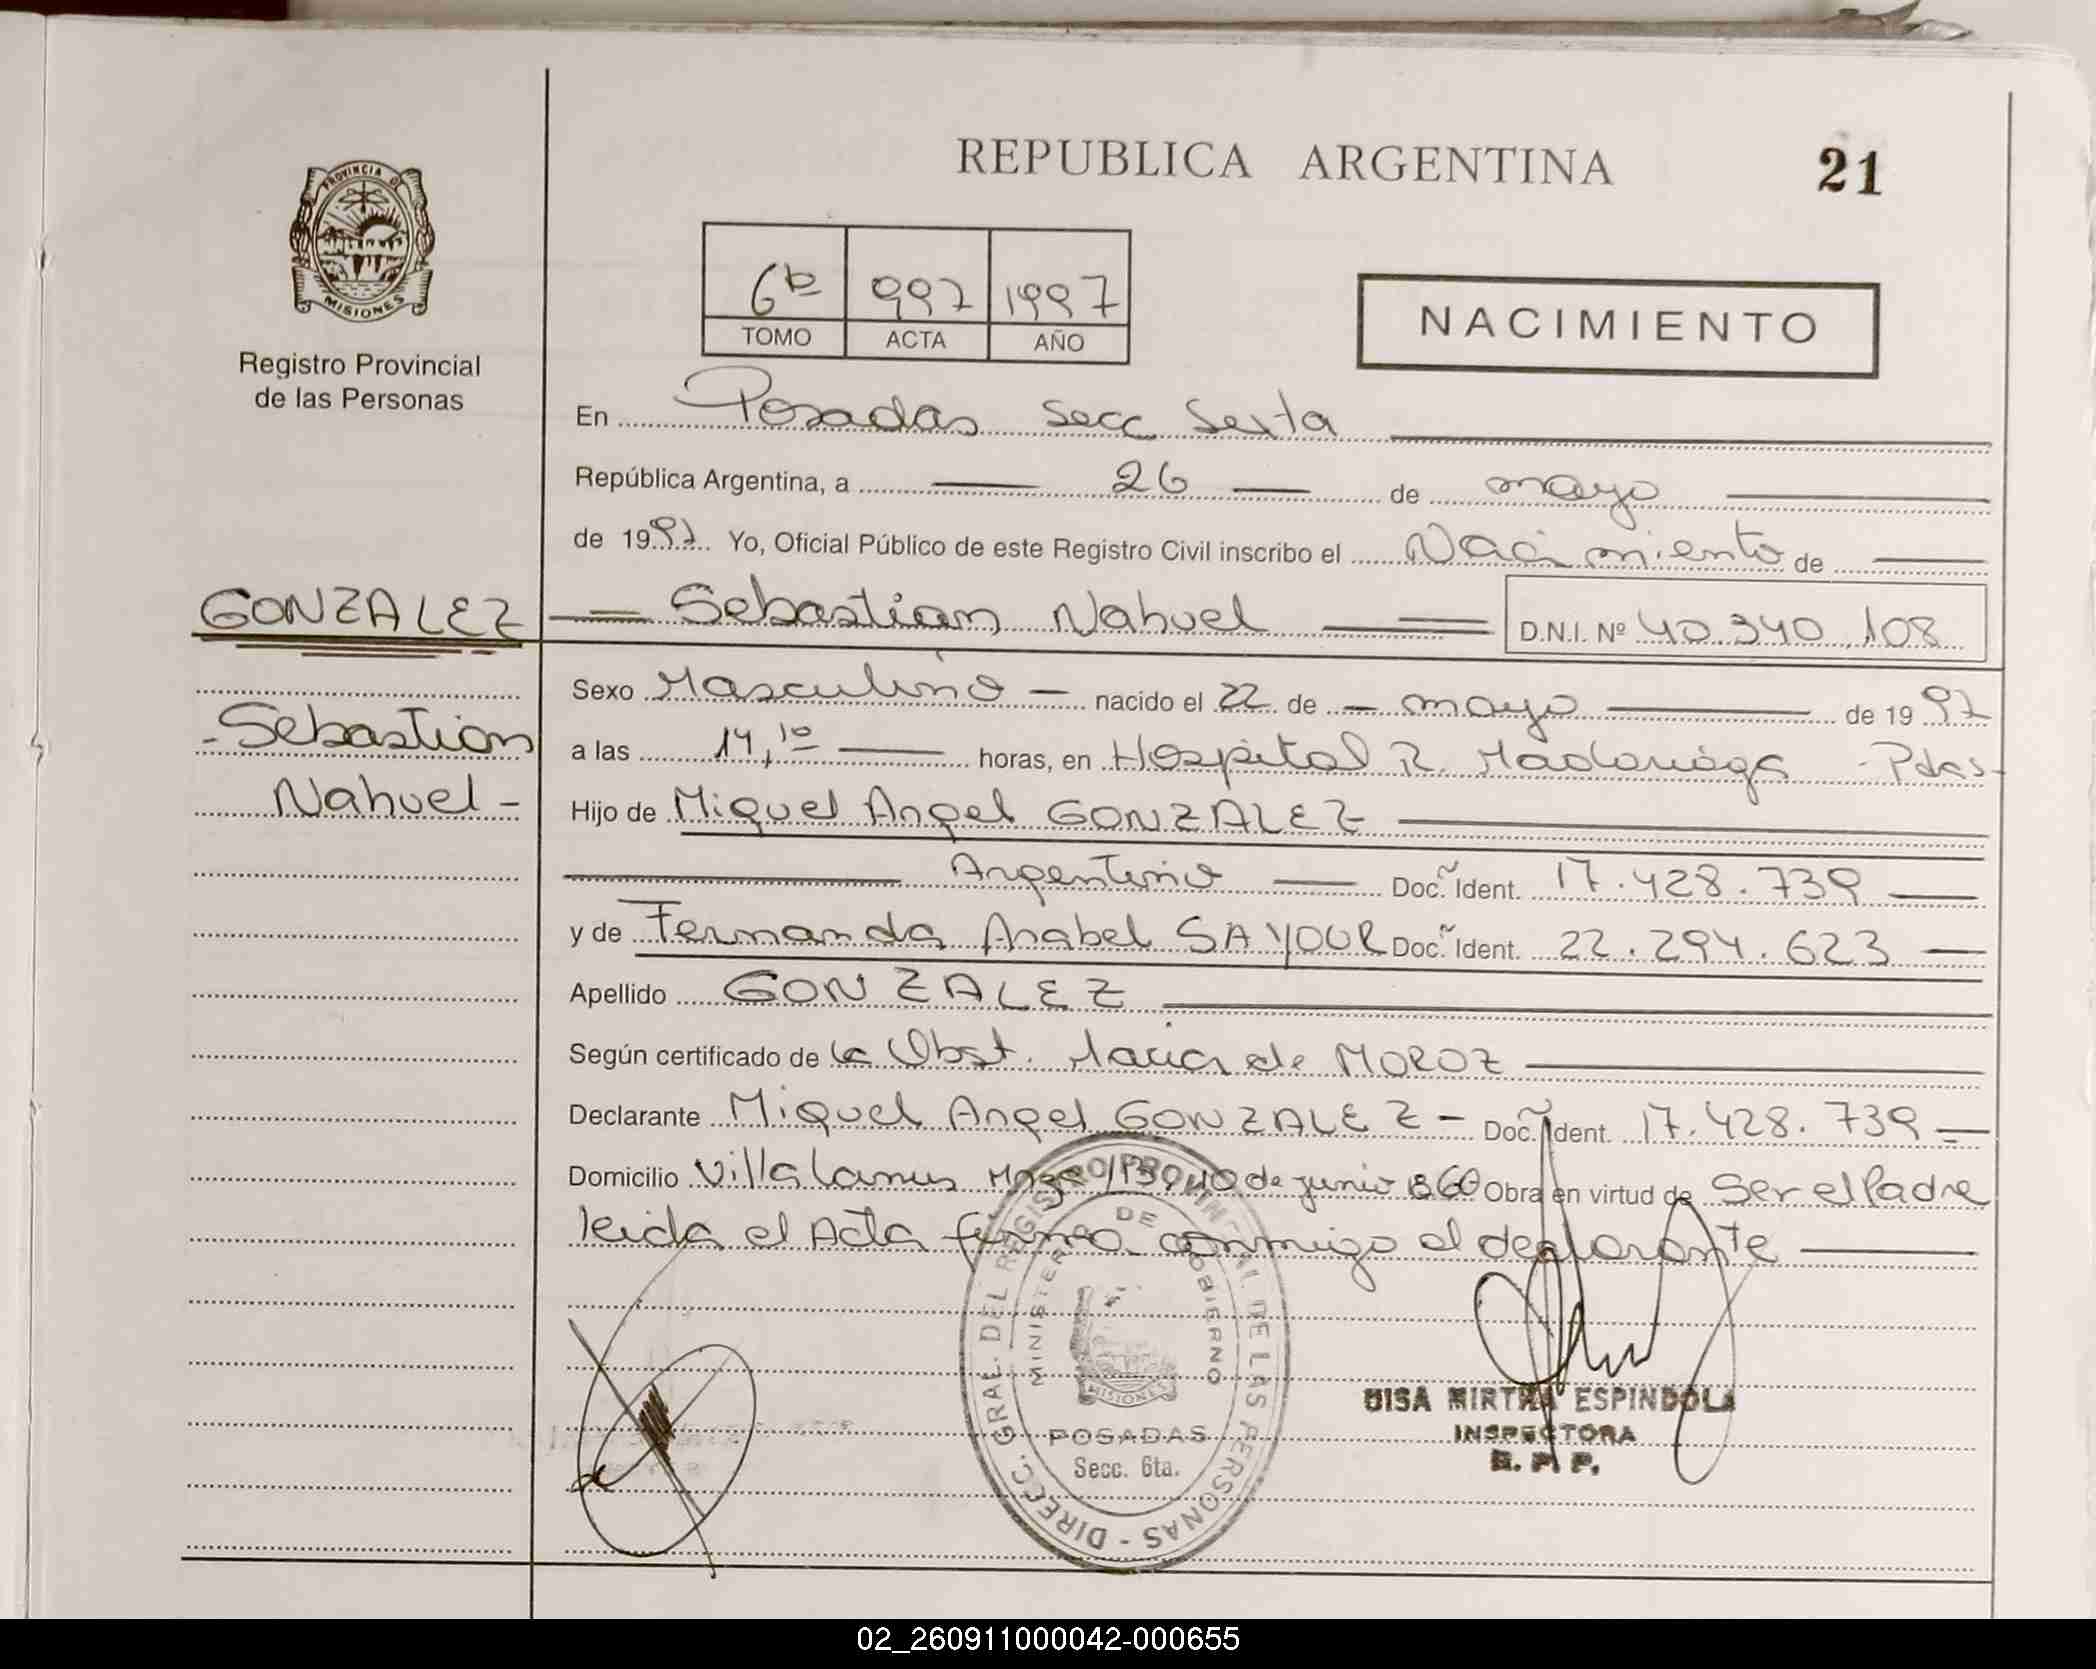 REPUBLICA ARGENTINA
21
PROVINCIA DE
MISIONES
Registro Provincial
de las Personas
6to 997 1997
TOMO ACTA AÑO
NACIMIENTO
En Posadas Secc Sexta
República Argentina, a 26 de mayo
de 1997 Yo, Oficial Público de este Registro Civil inscribo el Nacimiento de
GONZALEZ Sebastian Nahuel D.N.I. Nº 40.340.108
Sexo Masculino nacido el 22 de mayo de 1997
- Sebastian
a las 14,10 horas, en Hospital R. Madariaga - Pdas -
Nahuel -
Hijo de Miguel Angel GONZALEZ
Argentino Doc. Ident. 17.428.739
y de Fernanda Anabel SAYOUR Doc. Ident. 22.294.623
Apellido GONZALEZ
Según certificado de la Obst. Maria de MOROZ
Declarante Miguel Angel GONZALEZ - Doc. Ident. 17.428.739
Domicilio Villa Lanus 10 de junio Obra en virtud de Ser el Padre
leida el Acta firma conmigo el declarante
DIRECC. GRAL. DEL REGISTRO PROVINCIAL DE LAS PERSONAS -
MINISTERIO DE GOBIERNO
MISIONES
POSADAS
Secc. 6ta.
MIRTHA ESPINDOLA
INSPECTORA
R. P. P.
02_260911000042-000655